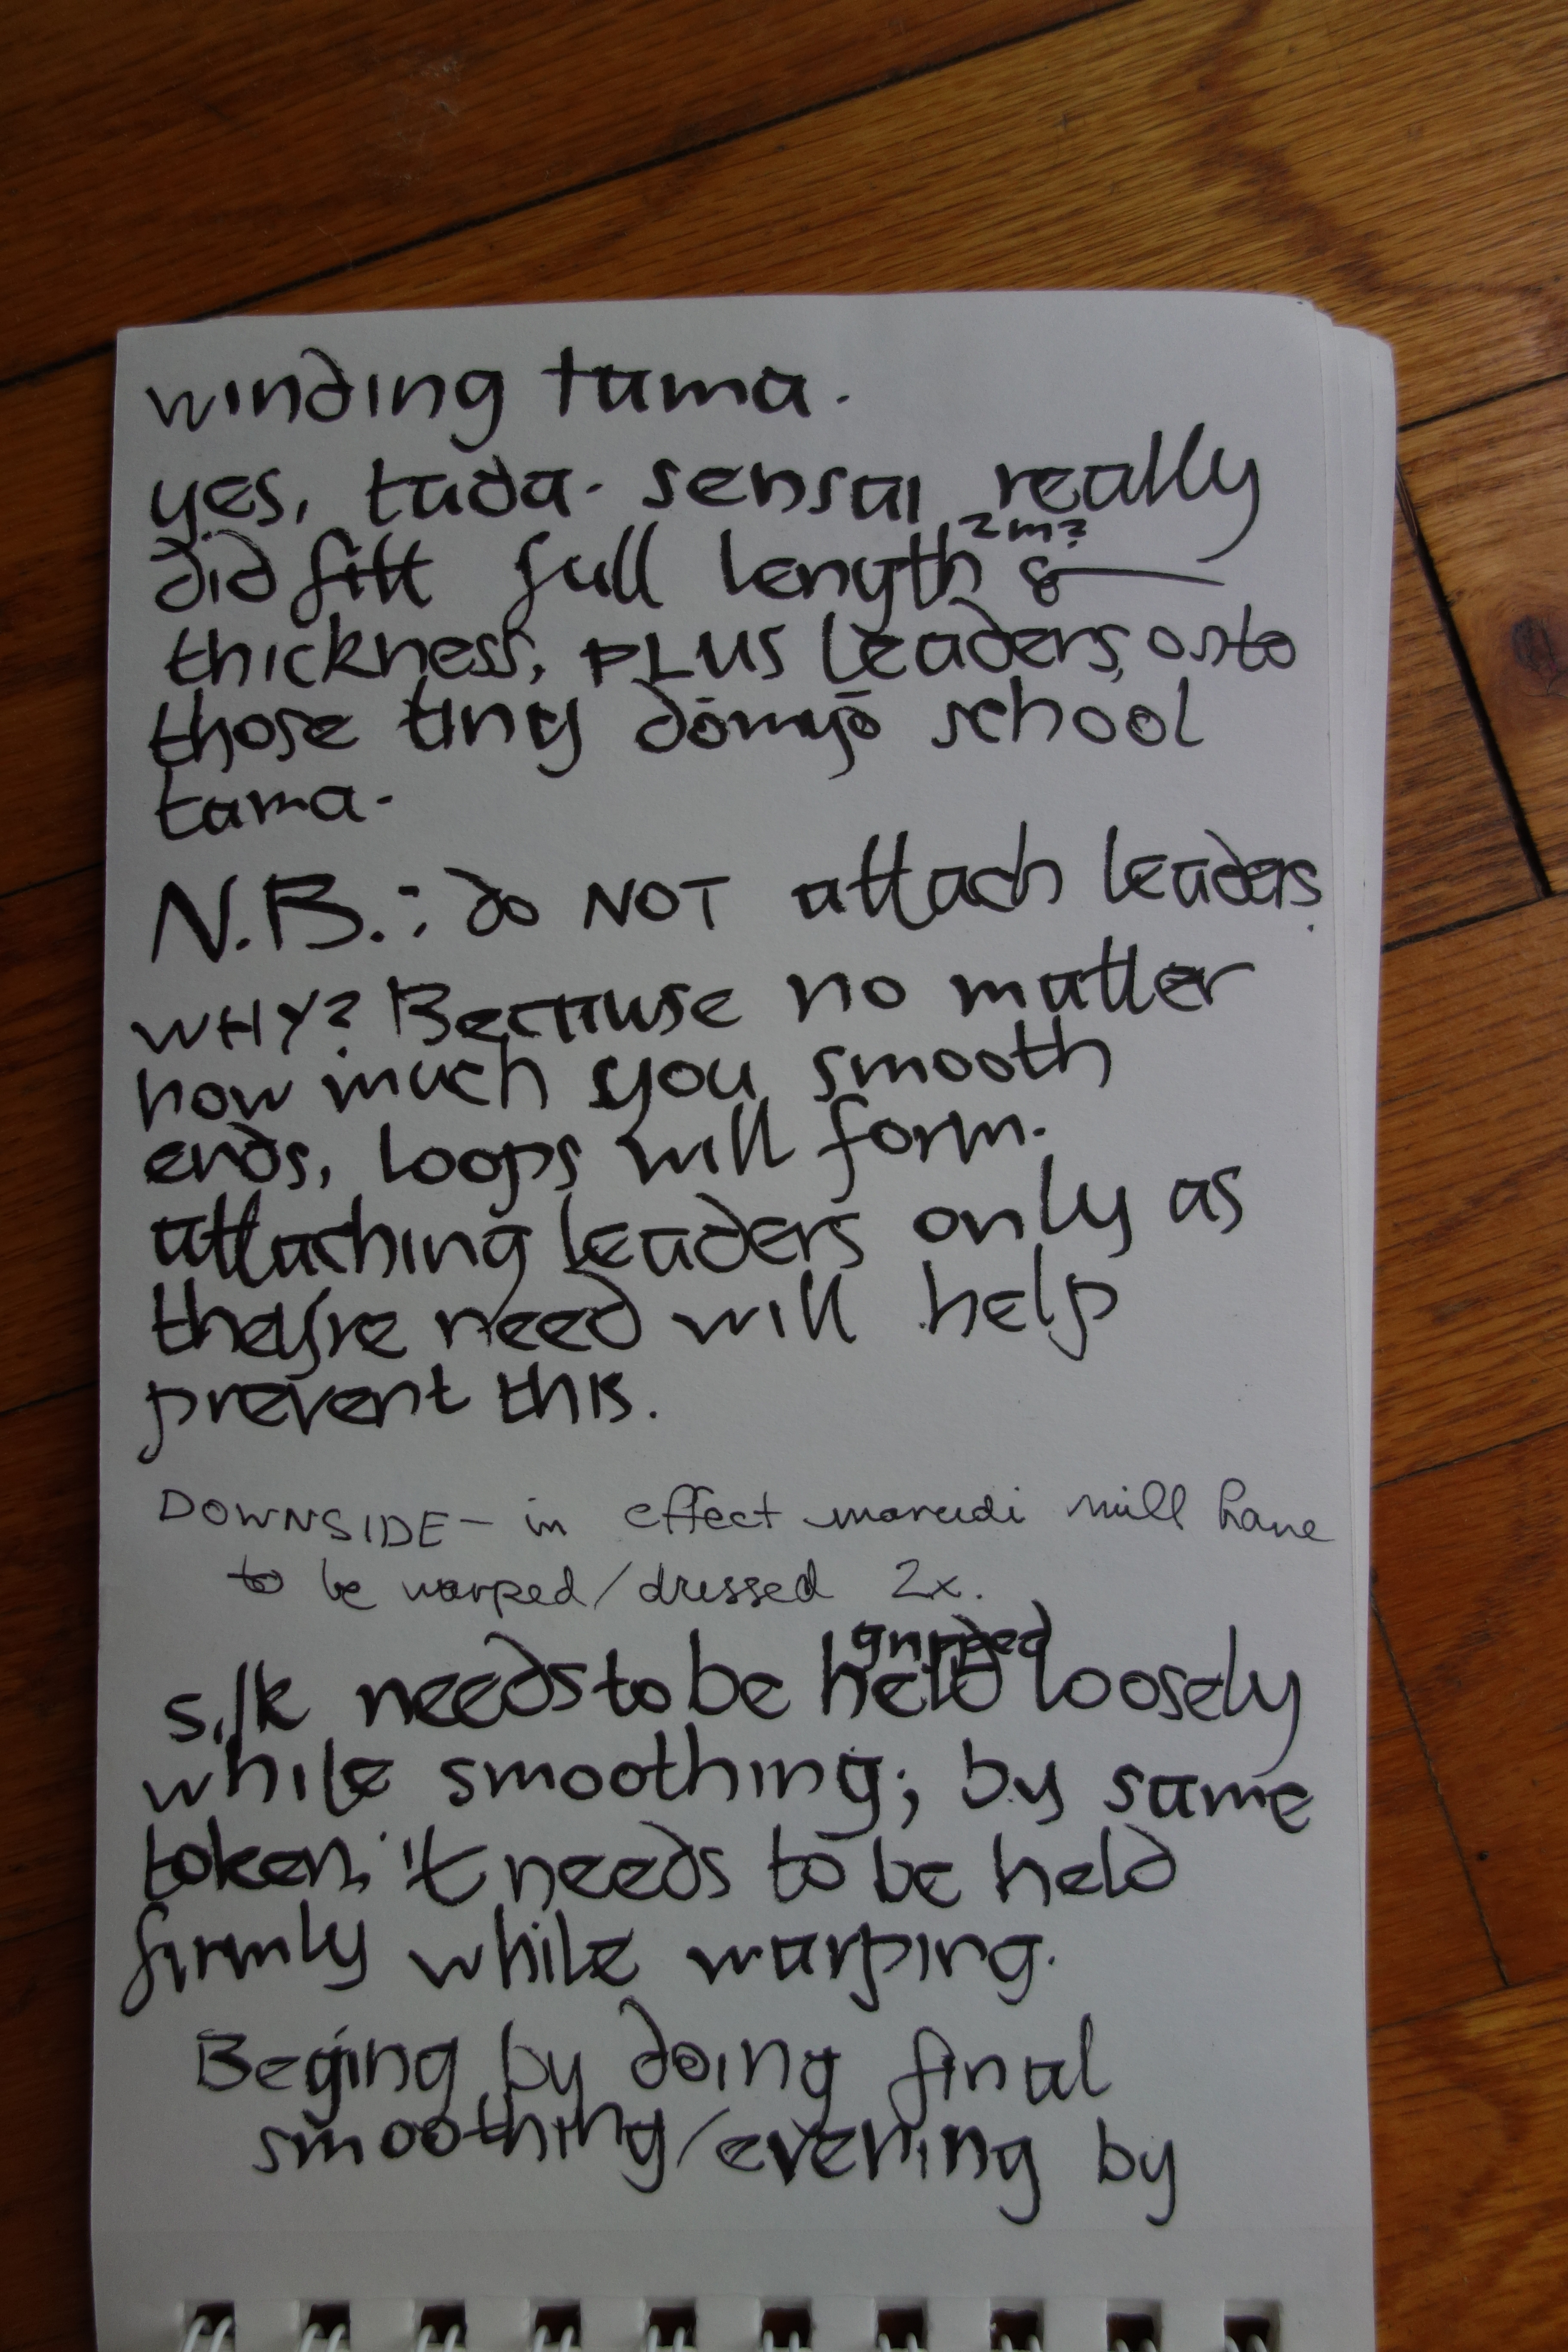 winding tama.
yes, tada-sensai really
did fitt full length 2m? &
thickness, PLUS leaders, onto
those tiny dōmyō school
tama.
N.B.: do NOT attach leaders.
WHY? Because no matter
how much you smooth
ends, loops will form.
attaching leaders only as
they're need will help
prevent this.
DOWNSIDE - in effect marudi will have
to be warped/dressed 2x.
gripped
silk needs to be held loosely
while smoothing; by same
token, it needs to be held
firmly while warping.
Beging by doing final
smoothing/evening by